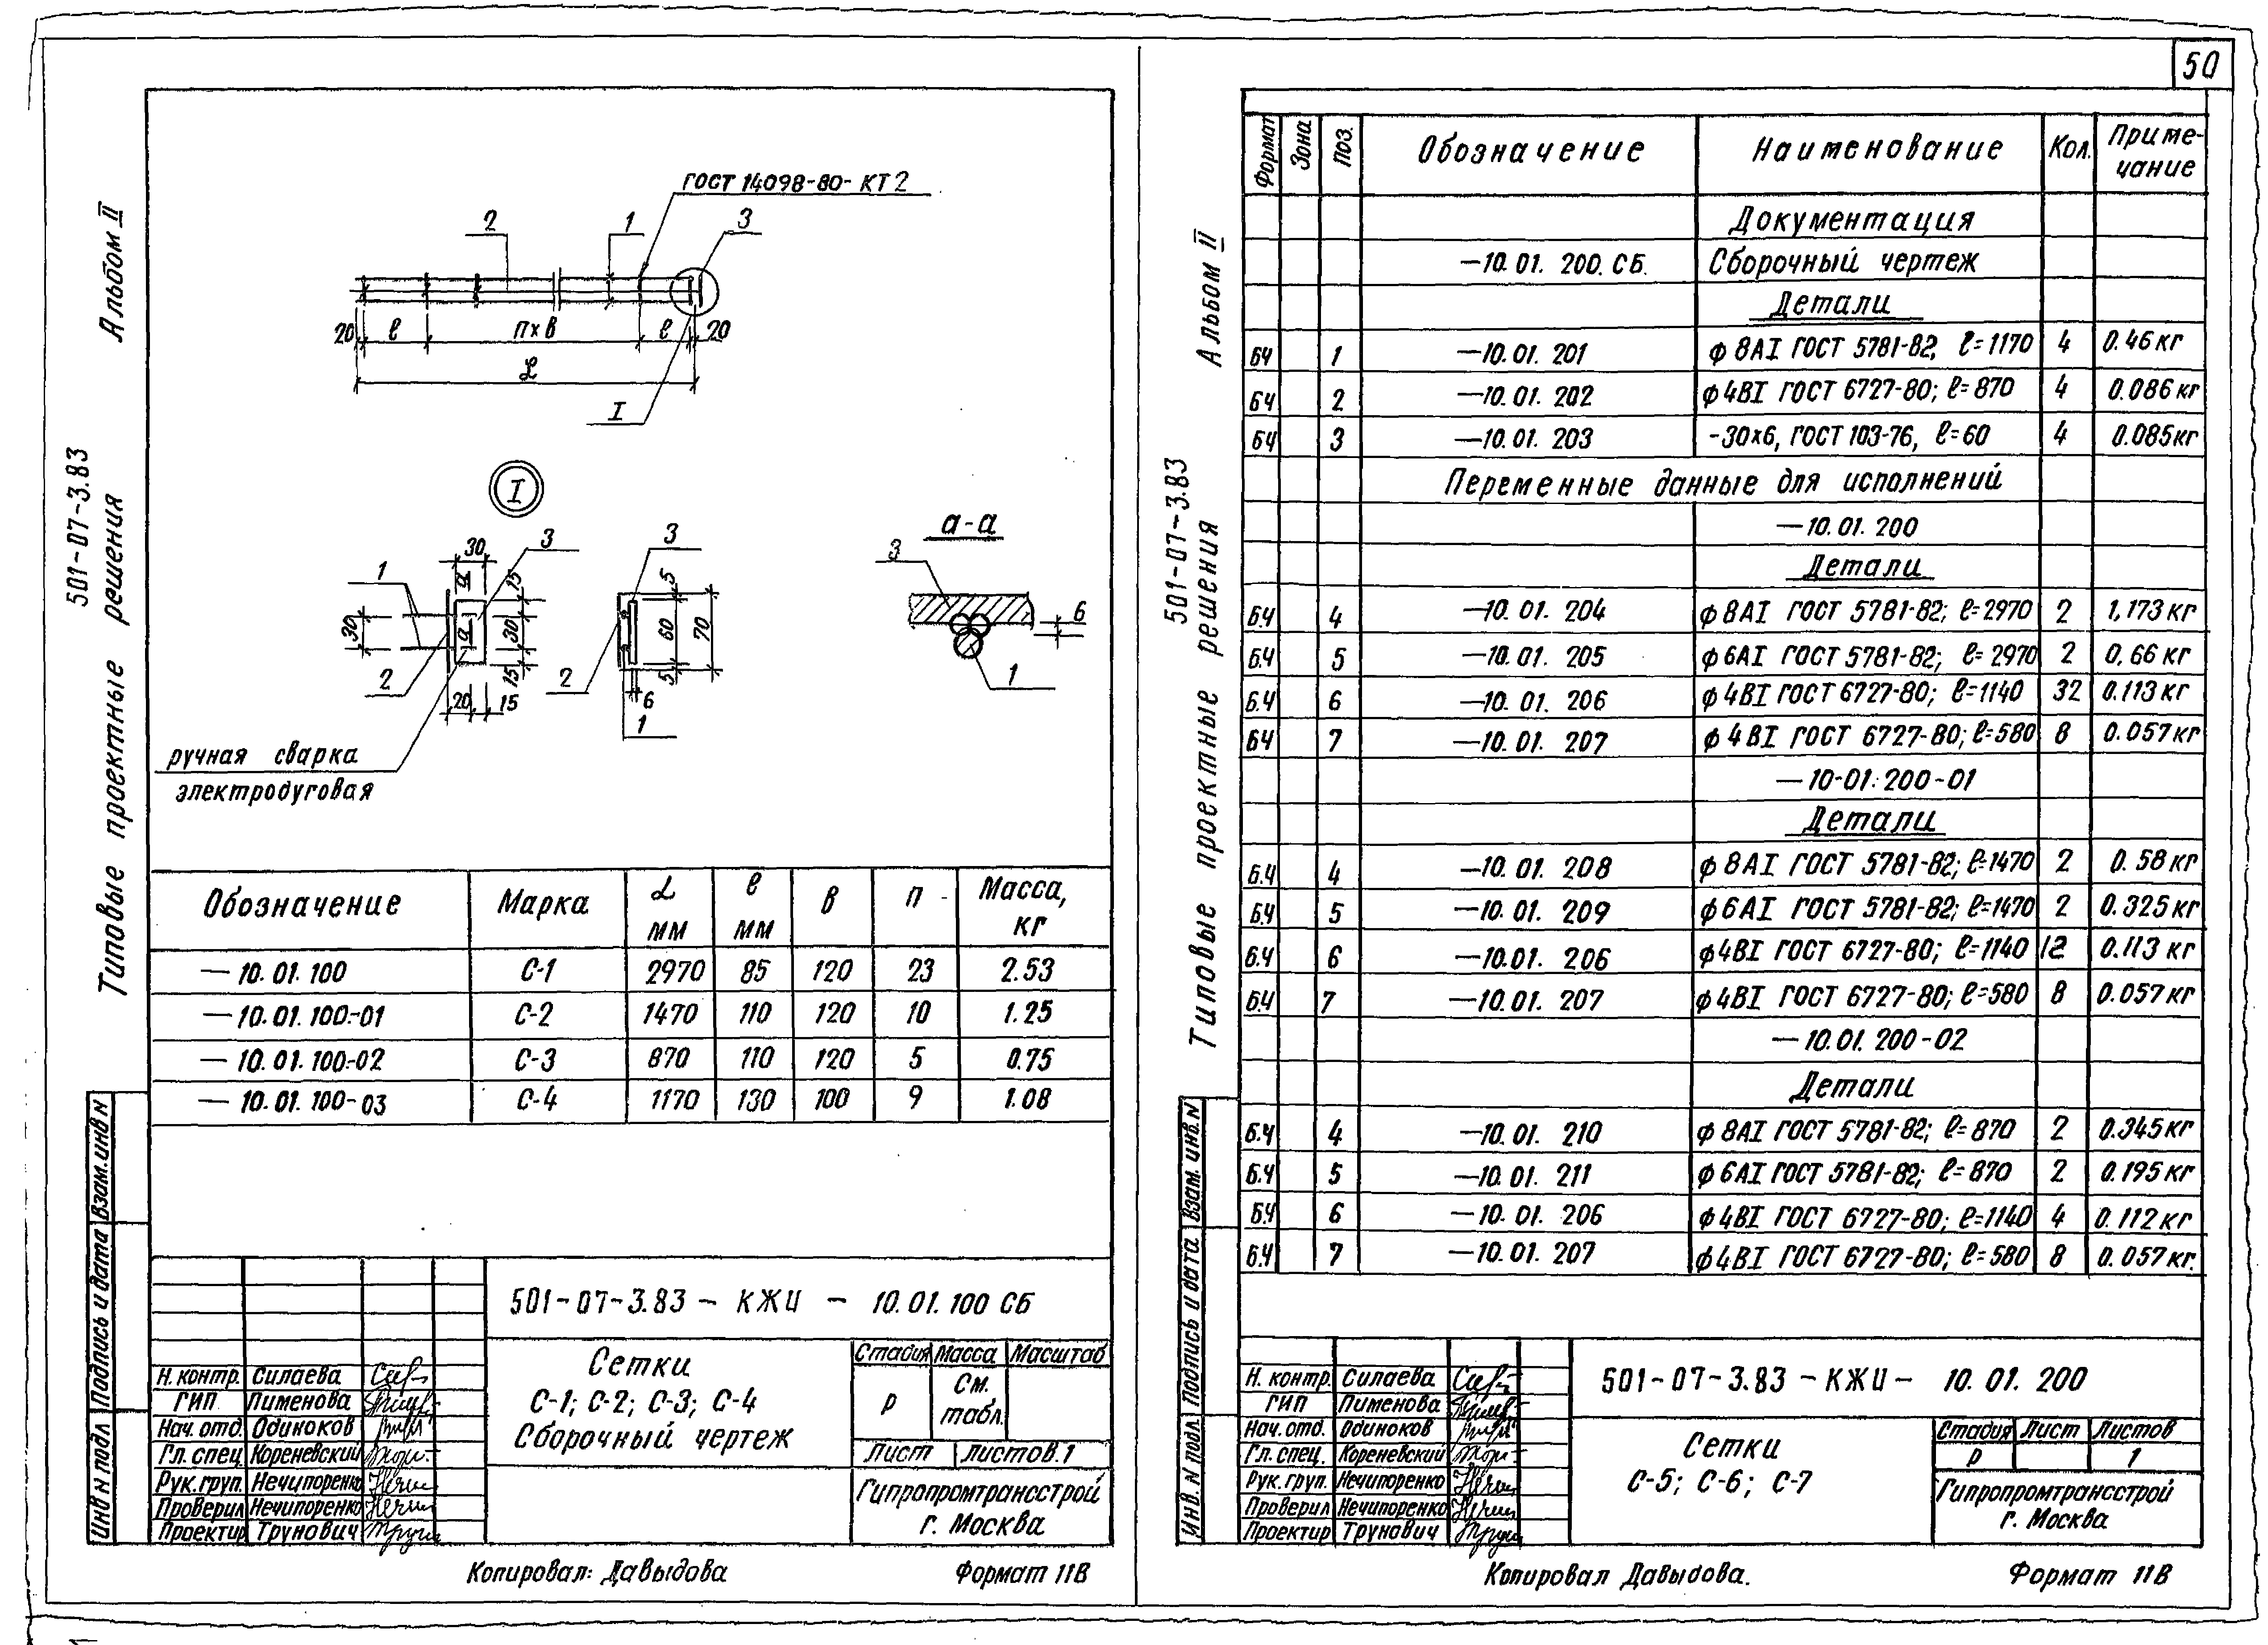 50
Альбом II
501-07-3.83
Типовые проектные решения
ГОСТ 14098-80-КТ2
2
1
3
20
ℓ
п×в
ℓ
20
L
I
I
30
3
15
1
а
30
а
30
2
15
20
15
3
5
60
70
2
5
6
1
а-а
3
6
1
ручная сварка
электродуговая
Обозначение Марка L мм ℓ мм в п Масса, кг
— 10.01.100 С-1 2970 85 120 23 2.53
— 10.01.100-01 С-2 1470 110 120 10 1.25
— 10.01.100-02 С-3 870 110 120 5 0.75
— 10.01.100-03 С-4 1170 130 100 9 1.08
Инв N подл Подпись и дата Взам.инв N
501-07-3.83 - КЖИ - 10.01.100 СБ
Сетки
С-1; С-2; С-3; С-4
Сборочный чертеж
Стадия Масса Масштаб
Р См. табл.
Лист Листов.1
Гипропромтрансстрой
г. Москва
Н. контр. Силаева
ГИП Пименова
Нач. отд. Одиноков
Гл. спец. Кореневский
Рук. груп. Нечипоренко
Проверил Нечипоренко
Проектир Трунович
Копировал: Давыдова Формат 11В
Альбом II
501-07-3.83
Типовые проектные решения
Формат Зона Поз. Обозначение Наименование Кол. Приме-
чание
Документация
—10.01.200.СБ. Сборочный чертеж
Детали
БЧ 1 —10.01.201 ф8АI ГОСТ 5781-82, ℓ=1170 4 0.46 кг
БЧ 2 —10.01.202 ф4ВI ГОСТ 6727-80; ℓ=870 4 0.086 кг
БЧ 3 —10.01.203 -30×6, ГОСТ 103-76, ℓ=60 4 0.085 кг
Переменные данные для исполнений
—10.01.200
Детали
Б.Ч 4 —10.01.204 ф8АI ГОСТ 5781-82; ℓ=2970 2 1,173 кг
Б.Ч 5 —10.01.205 ф6АI ГОСТ 5781-82; ℓ=2970 2 0,66 кг
Б.Ч 6 —10.01.206 ф4ВI ГОСТ 6727-80; ℓ=1140 32 0.113 кг
БЧ 7 —10.01.207 ф4ВI ГОСТ 6727-80; ℓ=580 8 0.057 кг
—10-01.200-01
Детали
Б.Ч 4 —10.01.208 ф8АI ГОСТ 5781-82; ℓ=1470 2 0.58 кг
Б.Ч 5 —10.01.209 ф6АI ГОСТ 5781-82; ℓ=1470 2 0.325 кг
Б.Ч 6 —10.01.206 ф4ВI ГОСТ 6727-80; ℓ=1140 12 0.113 кг
Б.Ч 7 —10.01.207 ф4ВI ГОСТ 6727-80; ℓ=580 8 0.057 кг
—10.01.200-02
Детали
Б.Ч 4 —10.01.210 ф8АI ГОСТ 5781-82; ℓ=870 2 0.345 кг
Б.Ч 5 —10.01.211 ф6АI ГОСТ 5781-82; ℓ=870 2 0.195 кг
Б.Ч 6 —10.01.206 ф4ВI ГОСТ 6727-80; ℓ=1140 4 0.112 кг
Б.Ч 7 —10.01.207 ф4ВI ГОСТ 6727-80; ℓ=580 8 0.057 кг.
Инв. N подл. Подпись и дата Взам. инв. N
501-07-3.83 - КЖИ - 10.01.200
Сетки
С-5; С-6; С-7
Стадия Лист Листов
Р 1
Гипропромтрансстрой
г. Москва
Н. контр. Силаева
ГИП Пименова
Нач. отд. Одиноков
Гл. спец. Кореневский
Рук. груп. Нечипоренко
Проверил Нечипоренко
Проектир Трунович
Копировал Давыдова. Формат 11В